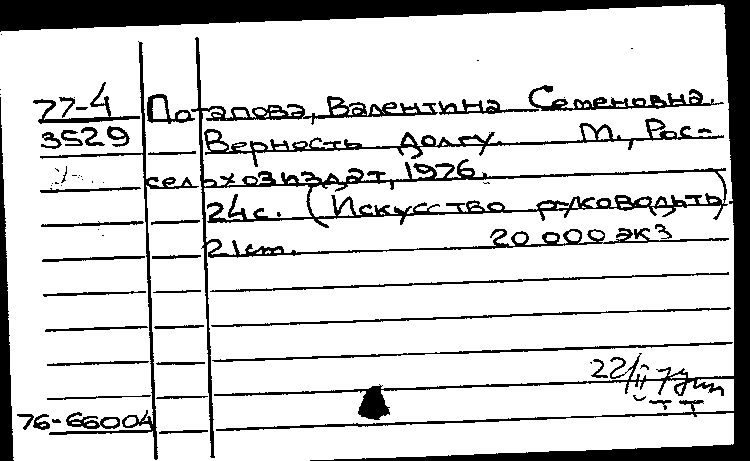 77-4 Потапова, Валентина Семеновна.
3529 Верность долгу. М., Рос-
сельхозиздат, 1976.
24с. (Искусство руководить)
21см. 20 000 экз
22/II
76-66004